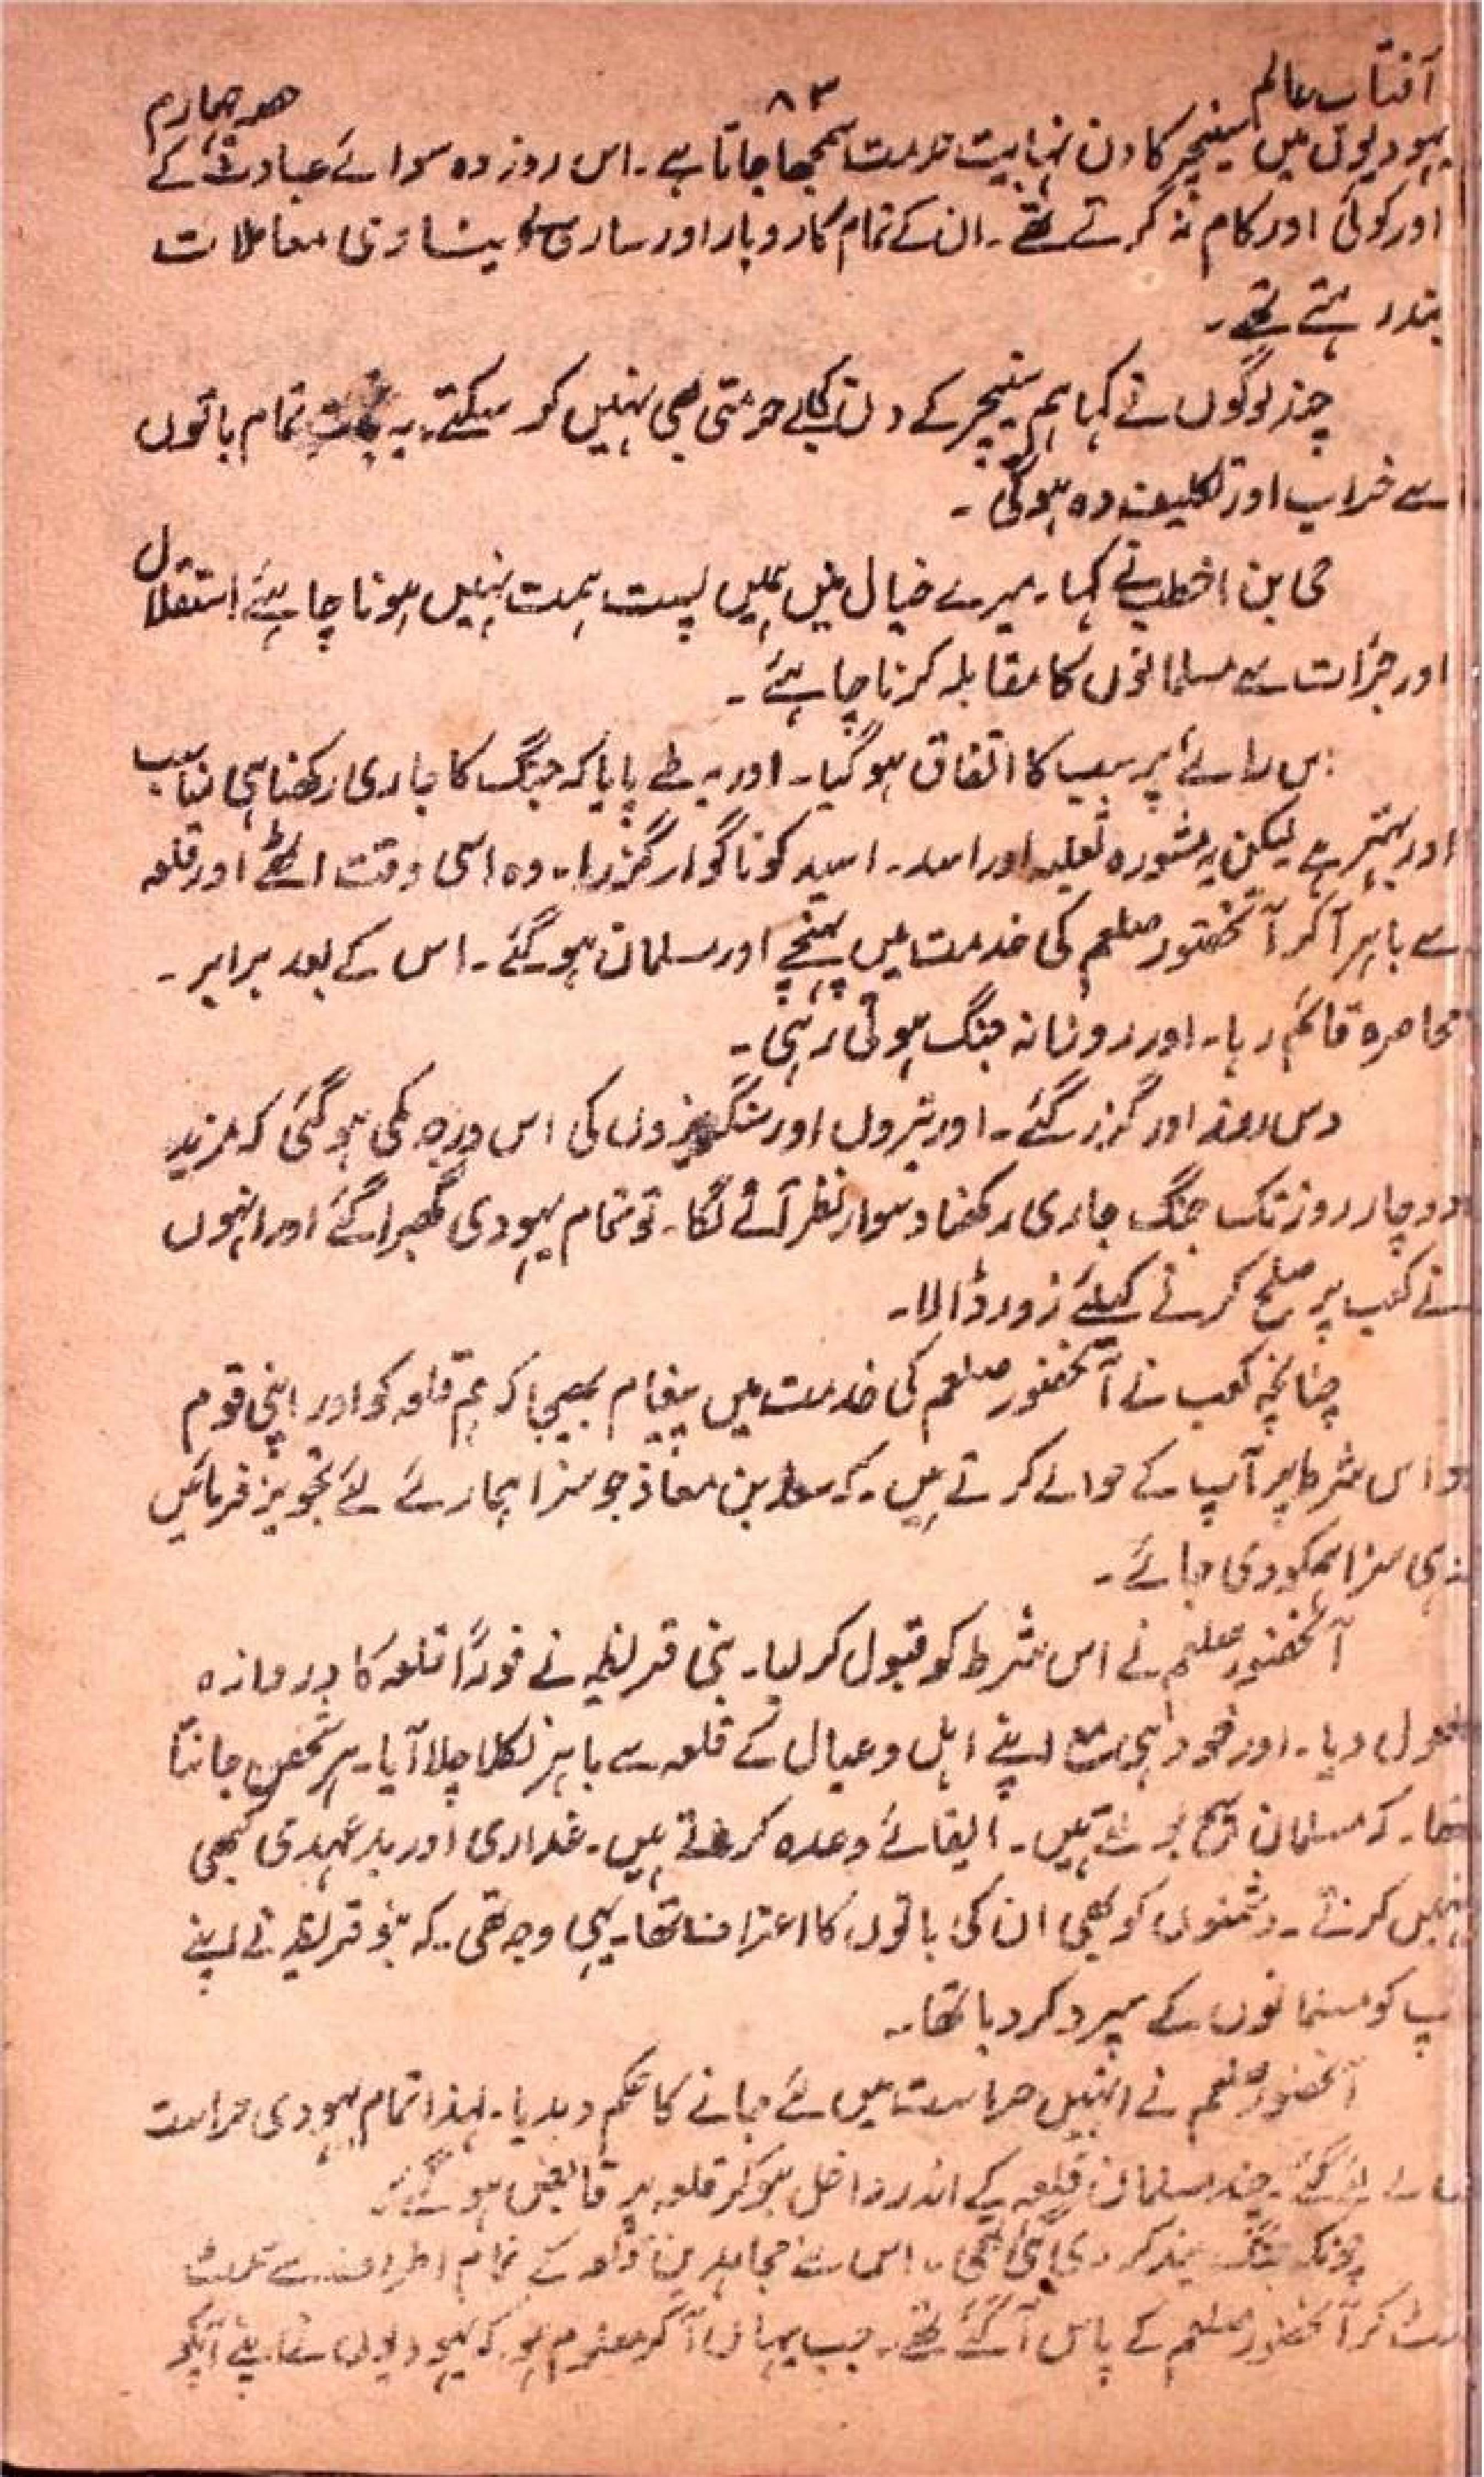 آفتاب عالم ۸۳ حصہ چہارم
یہودیوں میں سنیچر کا دن نہایت حرمت سمجھا جاتا ہے۔ اس روز وہ سوائے عبادت کے
اور کوئی اور کام نہ کرتے تھے۔ ان کے تمام کاروبار اور ساری دنیاوی معاملات
بند رہتے تھے۔
چند لوگوں نے کہا ہم سنیچر کے دن کی بے حرمتی بھی نہیں کر سکتے۔ یہ بات تمام باتوں
سے خراب اور تکلیف دہ ہوگی۔
حی ابن اخطب نے کہا۔ میرے خیال میں ہمیں پست ہمت نہیں ہونا چاہئے استقلال
اور جرأت سے مسلمانوں کا مقابلہ کرنا چاہئے۔
اس رائے پر سب کا اتفاق ہو گیا۔ اور یہ طے پایا کہ جنگ کا جاری رکھنا ہی مناسب
اور بہتر ہے لیکن یہ مشورہ ثعلبہ اور اسد۔ اسید کو ناگوار گزرا۔ وہ اسی وقت اٹھے اور قلعہ
سے باہر آکر آنحضور صلعم کی خدمت میں پہنچے اور مسلمان ہو گئے۔ اس کے بعد برابر۔
محاصرہ قائم رہا۔ اور روزانہ جنگ ہوتی رہی۔
دس روز اور گزر گئے۔ اور تیروں اور سنگریزوں کی اس درجہ کمی ہو گئی کہ مزید
دو چار روز تک جنگ جاری رکھنا دشوار نظر آنے لگا۔ تو تمام یہودی گھبرا گئے اور انہوں
نے کعب پر صلح کرنے کیلئے زور ڈالا۔
چنانچہ کعب نے آنحضور صلعم کی خدمت میں پیغام بھیجا کہ ہم قلعہ کو اور اپنی قوم
کو اس شرط پر آپ کے حوالے کرتے ہیں۔ کہ سعد بن معاذ جو سزا ہمارے لئے تجویز فرمائیں
وہی سزا ہمکو دی جائے۔
آنحضور صلعم نے اس شرط کو قبول کر لیا۔ بنی قریظہ نے فوراً قلعہ کا دروازہ
کھول دیا۔ اور خود ہی مع اپنے اہل و عیال کے قلعہ سے باہر نکلا چلا آیا۔ ہر شخص جانتا
تھا۔ کہ مسلمان سچ بولتے ہیں۔ ایفائے وعدہ کرتے ہیں۔ غداری اور بدعہدی کبھی
نہیں کرتے۔ دشمنوں کو بھی ان کی باتوں کا اعتراف تھا۔ یہی وجہ تھی۔ کہ بنو قریظہ نے اپنے
آپ کو مسلمانوں کے سپرد کر دیا تھا۔
آنحضور صلعم نے انہیں حراست میں لئے جانے کا حکم دیدیا۔ لہذا تمام یہودی حراست
میں لے لئے گئے۔ چند مسلمان قلعہ کے اندر داخل ہو کر قلعہ پر قابض ہو گئے۔
چونکہ جنگ بند کر دی گئی تھی۔ اس لئے مجاہدین قلعہ کے تمام اطراف سے سمٹ
سمٹ کر آنحضور صلعم کے پاس آگئے تھے۔ جب یہاں آکر معلوم ہوا کہ یہودیوں نے اپنے آپکو